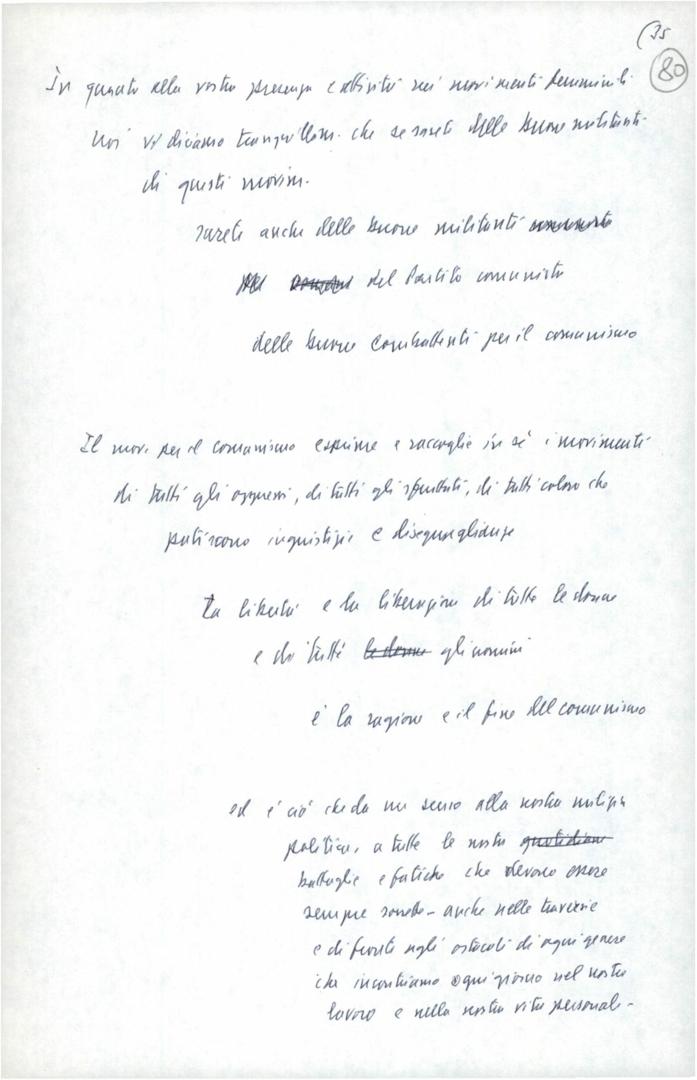 (35
80
In quanto alla vostra presenza e attività nei movimenti femminili
noi vi diciamo tranquillam. che se sarete delle buone militanti
di questi movim.
sarete anche delle buone militanti
del Partito comunista
delle buone combattenti per il comunismo
Il mov. per il comunismo esprime e raccoglie in sé i movimenti
di tutti gli oppressi, di tutti gli sfruttati, di tutti coloro che
patiscono ingiustizie e diseguaglianze
La libertà e la liberazione di tutte le donne
e di tutti le donne gli uomini
è la ragione e il fine del comunismo
ed è ciò che da un senso alla nostra milizia
politica, a tutte le nostre quotidiane
battaglie e fatiche che devono essere
sempre sorrette - anche nelle traversie
e di fronte agli ostacoli di ogni genere
che incontriamo ogni giorno nel nostro
lavoro e nella nostra vita personale -